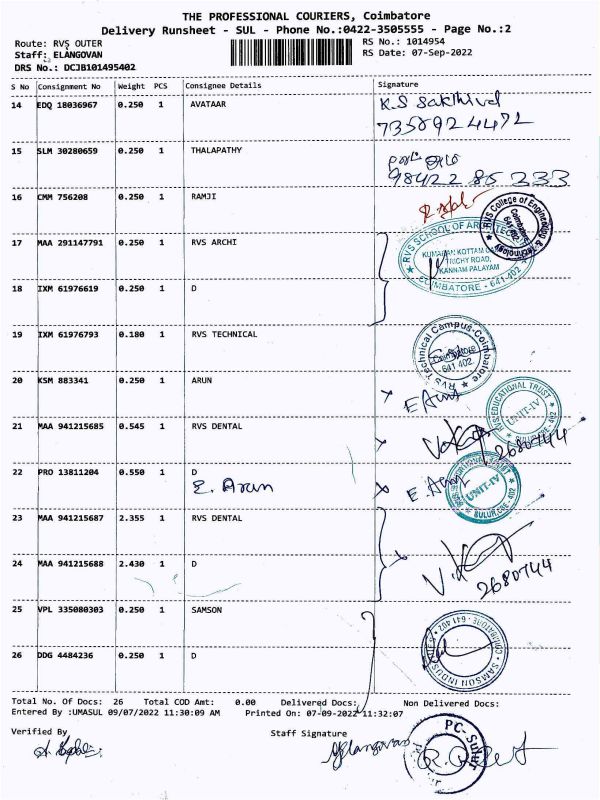 THE PROFESSIONAL COURIERS, Coimbatore
Delivery Runsheet - SUL - Phone No.:0422-3505555 - Page No.:2
Route: RVS OUTER
Staff: ELANGOVAN
DRS No.: DCJB101495402
RS No.: 1014954
RS Date: 07-Sep-2022
S No Consignment No Weight PCS Consignee Details Signature
14 EDQ 18036967 0.250 1 AVATAAR K.S Sakthivel
7358924472
15 SLM 30280659 0.250 1 THALAPATHY
98422 85 233
16 CMM 756208 0.250 1 RAMJI
RVS College of Engineering & Technology
Coimbatore
641 402
17 MAA 291147791 0.250 1 RVS ARCHI
RVS SCHOOL OF ARCHITECTURE
KUMARAN KOTTAM
TRICHY ROAD,
KANNAM PALAYAM
COIMBATORE - 641 402
18 IXM 61976619 0.250 1 D
19 IXM 61976793 0.180 1 RVS TECHNICAL
RVS Technical Campus-Coimbatore
Coimbatore
641 402
20 KSM 883341 0.250 1 ARUN
E Arun
RVS EDUCATIONAL TRUST
UNIT-IV
21 MAA 941215685 0.545 1 RVS DENTAL
2680744
22 PRO 13811204 0.550 1 D
E. Arun
E. Arun
UNIT-IV
SULUR, CBE - 402
23 MAA 941215687 2.355 1 RVS DENTAL
24 MAA 941215688 2.430 1 D
2680744
25 VPL 335080303 0.250 1 SAMSON
26 DDG 4484236 0.250 1 D
Total No. Of Docs: 26 Total COD Amt: 0.00 Delivered Docs: Non Delivered Docs:
Entered By :UMASUL 09/07/2022 11:30:09 AM Printed On: 07-09-2022 11:32:07
Verified By
Staff Signature
Elangovan
PC-Sulur